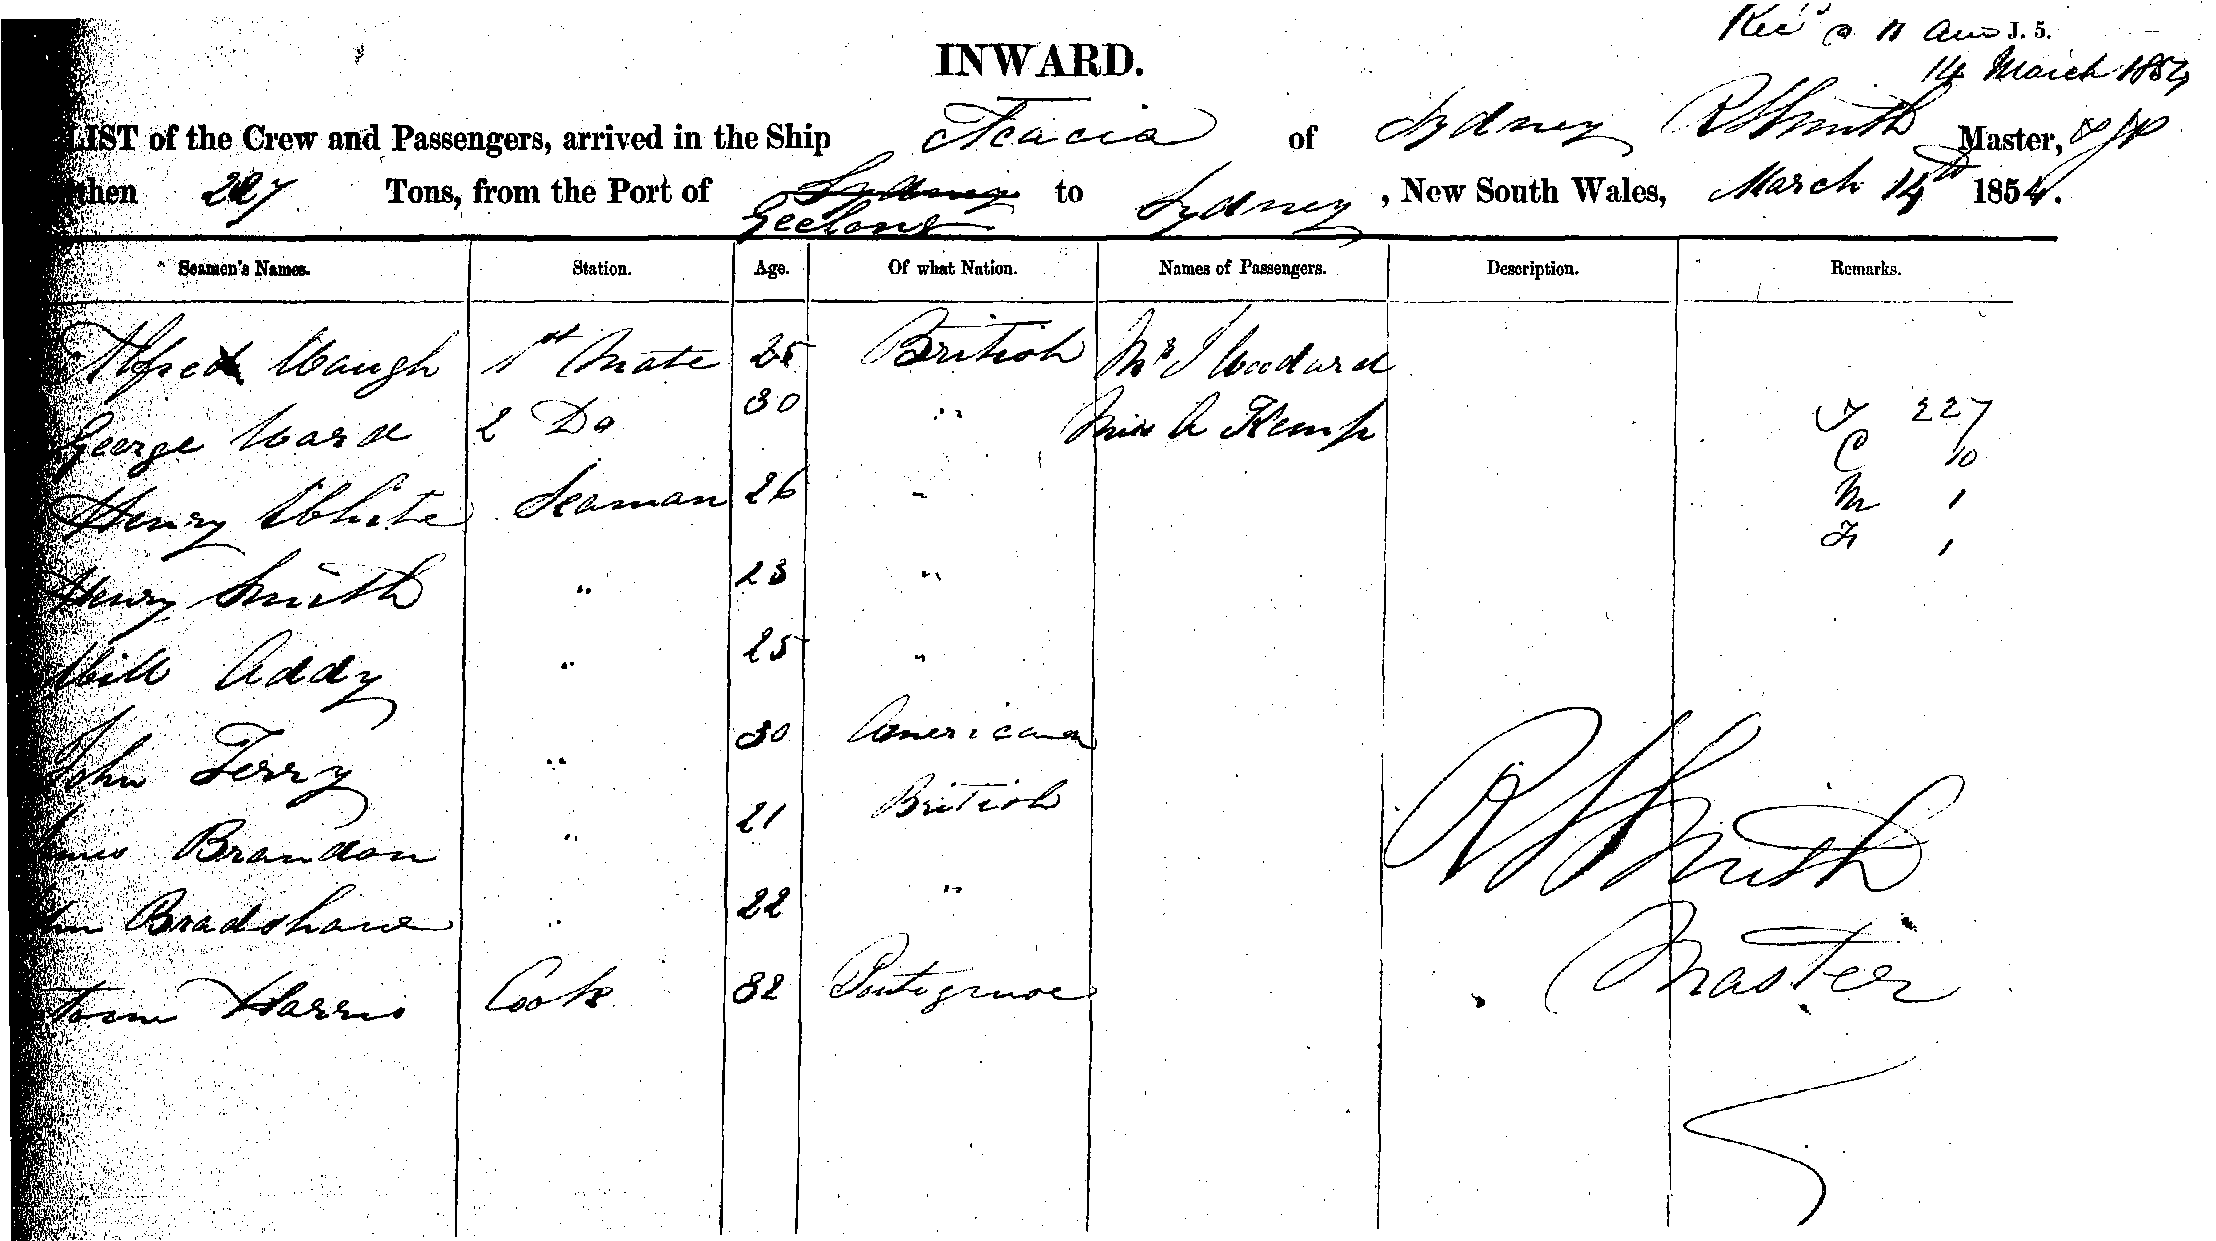 INWARD.
J. 5.
14 March 1854
LIST of the Crew and Passengers, arrived in the Ship Acacia of Sydney R S Smith Master,
then 227 Tons, from the Port of Sydney Geelong to Sydney, New South Wales, March 14th 1854.
Seamen's Names. Station. Age. Of what Nation. Names of Passengers. Description. Remarks.
Alfred Waugh 1st Mate 25 British Mr J Woodard
George Ward 2 Do 30 " Miss A Kemp T 227
C 10
Henry White Seaman 26 " M 1
F 1
Henry Smith " 23 "
Will Addy " 25 "
John Terry " 30 American
Brandon " 21 British
Bradshaw " 22 "
Harris Cook 32 Portugruoe
R S Smith
Master